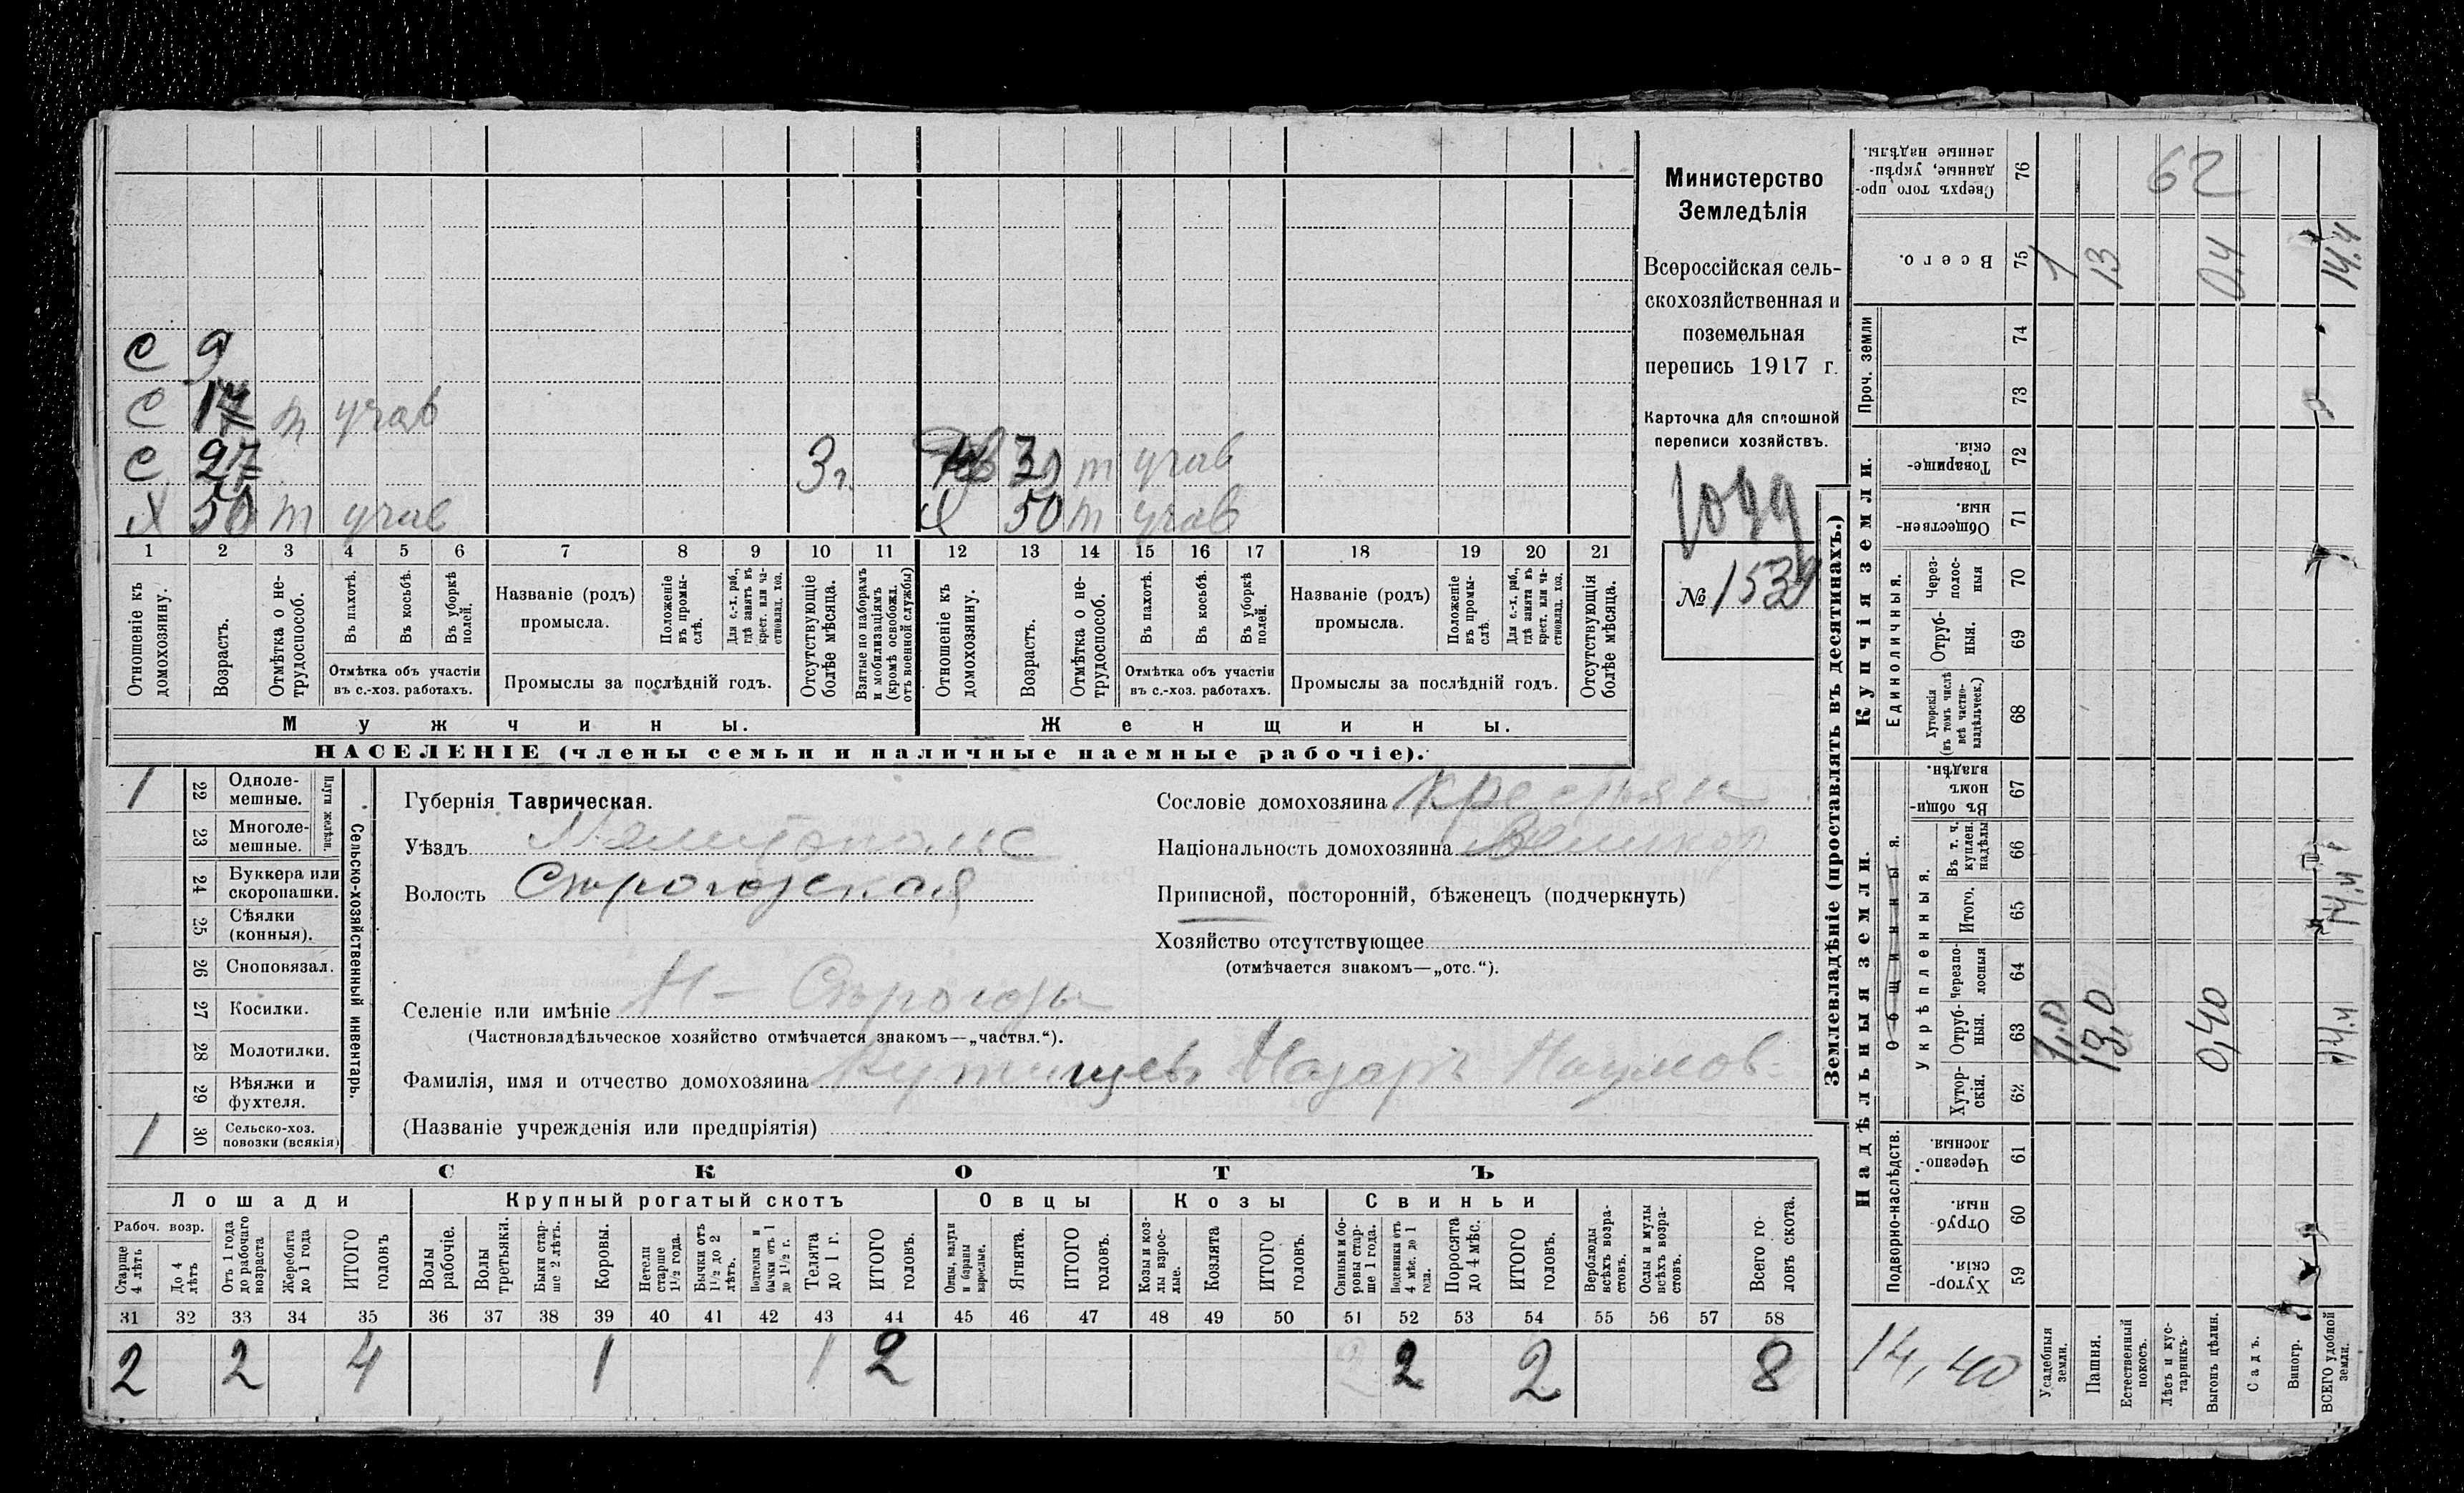 С 9
С 17 т учав
С 27 3 г. 30 т учав
Х 50 т учав Х 50 т учав
1 2 3 4 5 6 7 8 9 10 11 12 13 14 15 16 17 18 19 20 21
Отношеніе къ домохозяину.
Возрастъ.
Отмѣтка о нетрудоспособ.
Въ пахотѣ.
Въ косьбѣ.
Въ уборкѣ полей.
Отмѣтка объ участіи въ с.-хоз. работахъ.
Названіе (родъ) промысла.
Положеніе въ промыслѣ.
Для с.-х. раб., гдѣ занятъ въ крест. или частновлад. хоз.
Промыслы за послѣдній годъ.
Отсутствующіе болѣе мѣсяца.
Взятые по наборамъ и мобилизаціямъ (кромѣ освобожд. отъ военной службы)
Отношеніе къ домохозяину.
Возрастъ.
Отмѣтка о нетрудоспособ.
Въ пахотѣ.
Въ косьбѣ.
Въ уборкѣ полей.
Отмѣтка объ участіи въ с.-хоз. работахъ.
Названіе (родъ) промысла.
Положеніе въ промыслѣ.
Для с.-х. раб., гдѣ занята въ крест. или частновлад. хоз.
Промыслы за послѣдній годъ.
Отсутствующія болѣе мѣсяца.
Мужчины. Женщины.
НАСЕЛЕНІЕ (члены семьи и наличные наемные рабочіе).
Министерство
Земледѣлія
Всероссійская сель-
скохозяйственная и
поземельная
перепись 1917 г.
Карточка для сплошной
переписи хозяйствъ.
№ 1539
Сельско-хозяйственный инвентарь.
Плуги желѣзн.
1 22 Однолемешные.
23 Многолемешные.
24 Буккера или скоропашки.
25 Сѣялки (конныя).
26 Сноповязал.
27 Косилки.
28 Молотилки.
29 Вѣялки и фухтеля.
1 30 Сельско-хоз. повозки (всякія)
Губернія Таврическая.
Уѣздъ Мелитопольс
Волость Строгозская
Селеніе или имѣніе Н - Строгозы
(Частновладѣльческое хозяйство отмѣчается знакомъ—„частвл.“).
Фамилія, имя и отчество домохозяина Назаръ Наумов
(Названіе учрежденія или предпріятія)
Сословіе домохозяина крестьян
Національность домохозяина Великор
Приписной, посторонній, бѣженецъ (подчеркнуть)
Хозяйство отсутствующее
(отмѣчается знакомъ—„отс.“).
СКОТЪ
Лошади Крупный рогатый скотъ Овцы Козы Свиньи
Рабоч. возр.
Старше 4 лѣтъ
До 4 лѣтъ
Отъ 1 года до рабочаго возраста
Жеребята до 1 года
ИТОГО головъ
Волы рабочіе.
Волы третьяки.
Быки старше 2 лѣтъ.
Коровы.
Нетели старше 1½ года.
Бычки отъ 1½ до 2 лѣтъ.
Подтелки и бычки отъ 1 до 1½ г.
Телята до 1 г.
ИТОГО головъ.
Овцы, валухи и бараны взрослые.
Ягнята.
ИТОГО головъ.
Козы и козлы взрослые.
Козлята
ИТОГО головъ.
Свиньи и боровы старше 1 года.
Подсвинки отъ 4 мѣс. до 1 года.
Поросята до 4 мѣс.
ИТОГО головъ.
Верблюды всѣхъ возрастовъ.
Ослы и мулы всѣхъ возрастовъ.
Всего головъ скота.
31 32 33 34 35 36 37 38 39 40 41 42 43 44 45 46 47 48 49 50 51 52 53 54 55 56 57 58
2 2 4 1 1 2 2 2 8
Землевладѣніе (проставлять въ десятинахъ.)
Купчія земли.
Надѣльныя земли.
Сверхъ того проданные, укрѣпленные надѣлы. 76 62
Всего. 75 1 13 0.4 14.4
Проч. земли
74
73
Товарищескія. 72
Общественныя. 71
Единоличныя.
Черезполосныя 70
Отрубныя. 69
Хуторскія (въ томъ числѣ всѣ частновладѣльческ.) 68
Общинныя.
Въ общинномъ владѣн. 67
Укрѣпленныя.
Въ т. ч. куплен. надѣлы 66
Итого. 65 14.4
Черезполосныя 64
Отрубныя. 63 1,0 13,0 0,40 14.4
Хуторскія. 62
Подворно-наслѣдств.
Черезполосныя. 61
Отрубныя. 60
Хуторскія. 59
14,40
Усадебныя земли.
Пашня.
Естественный покосъ.
Лѣсъ и кустарникъ.
Выгонъ цѣлин.
Садъ.
Виногр.
ВСЕГО удобной земли.